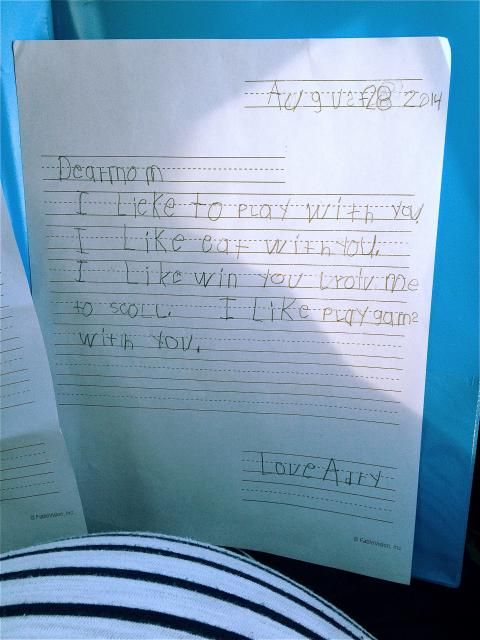 August 28 2014
Dearmom
I Lieke to play with you
I Like eat withyou.
I Like win you Lrolv me
to scoll. I Like playgams
with you.
Love Adry
© FableVision, Inc.
© FableVision, Inc.